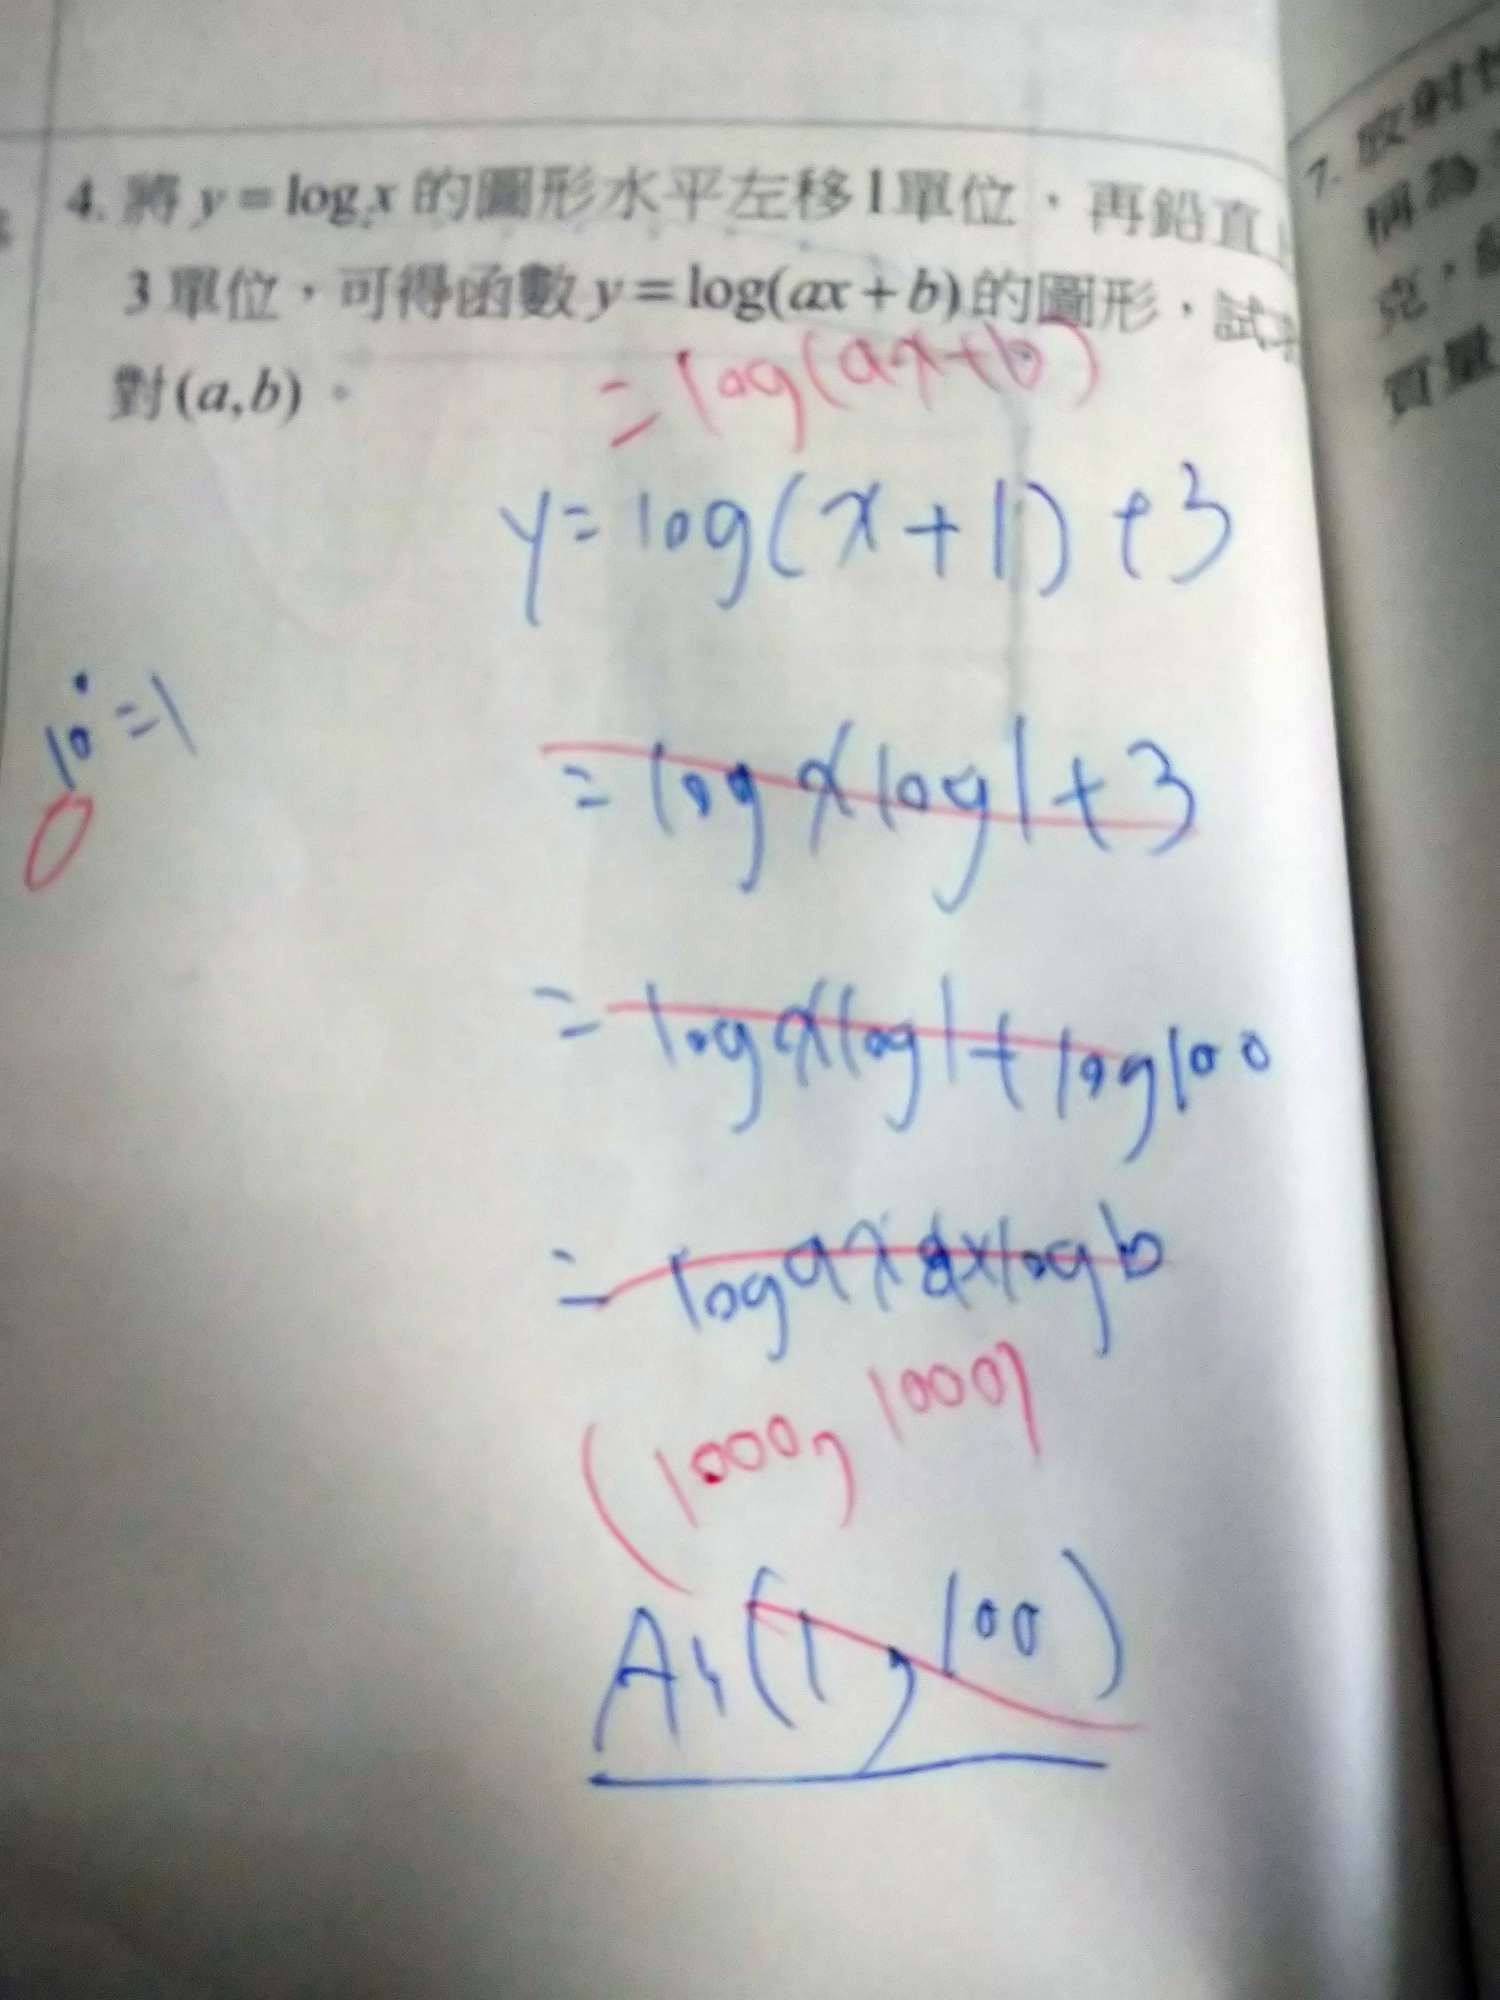 4. 將 y = log x 的圖形水平左移1單位，再鉛直
3 單位，可得函數 y = log(ax + b) 的圖形，試
對 (a,b)。
= log(ax+b)
y = log(x+1)+3
10⁰ = 1
0
= log x log 1 + 3
= log x log 1 + log 100
= log a x log b
(1000, 1000)
A: (1, 100)
7. 放射
稱為
克，
質量